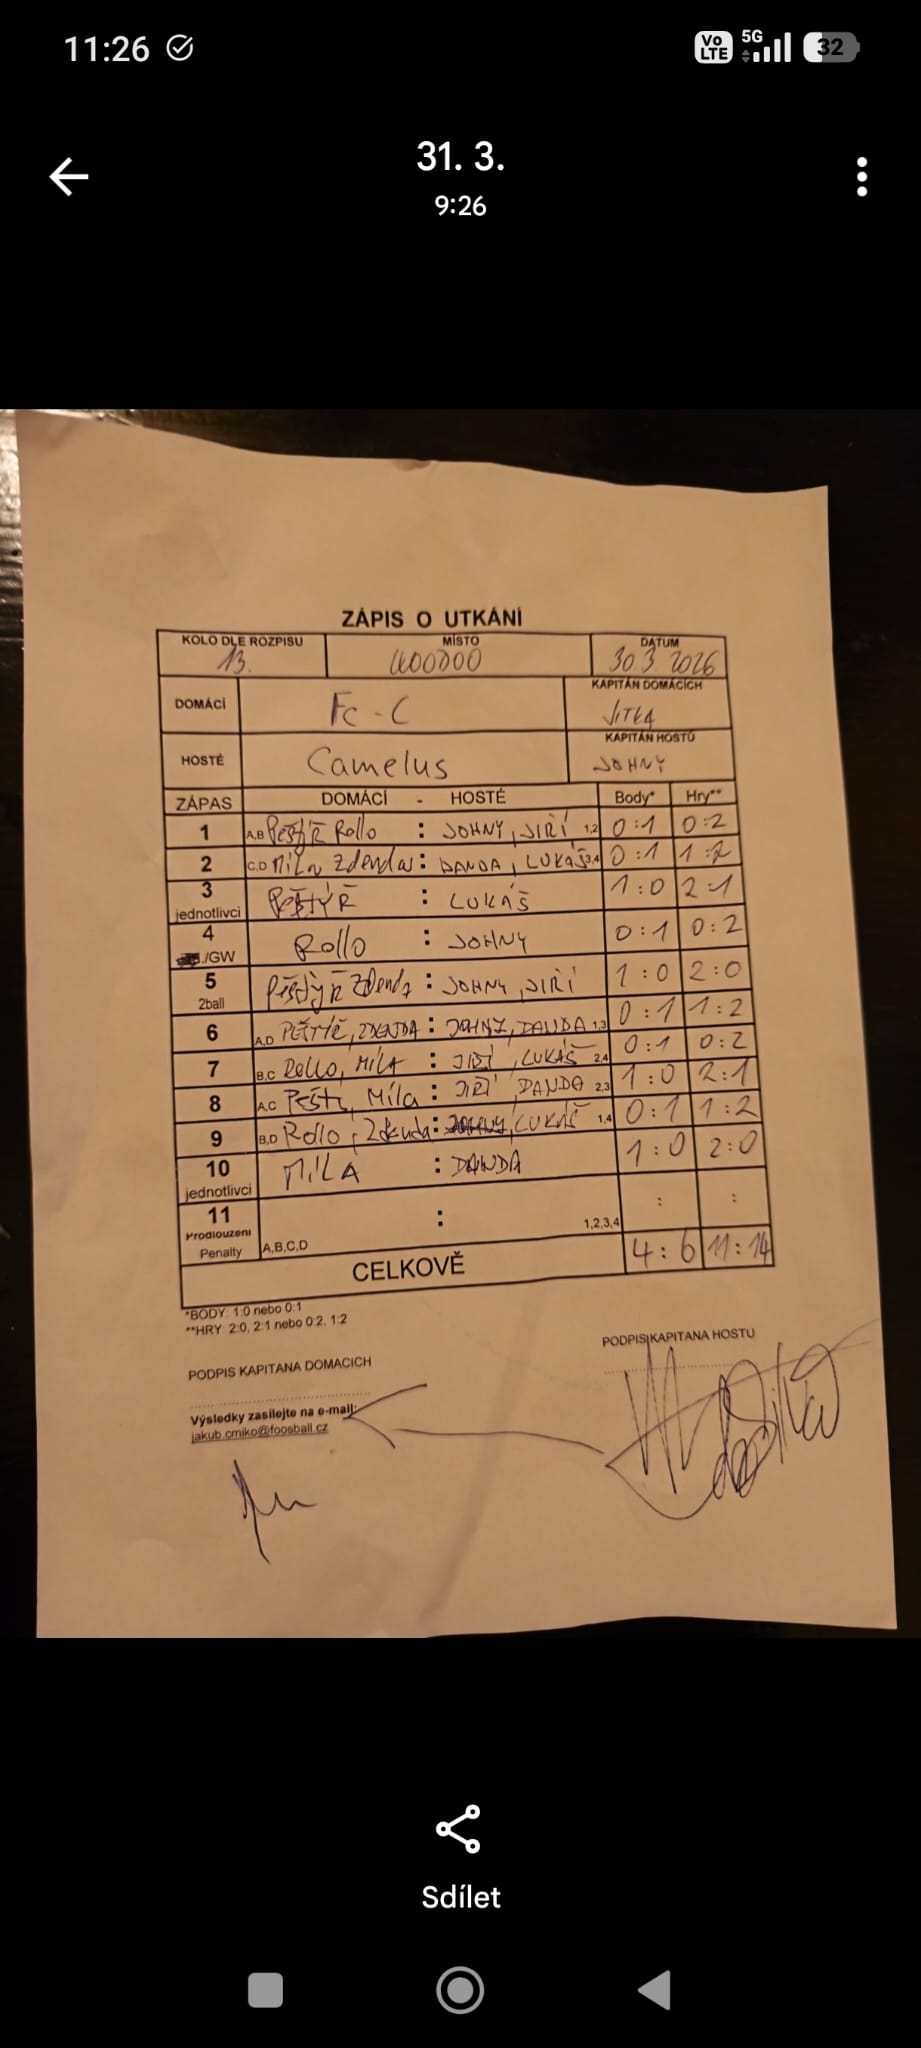 11:26
Vo LTE 5G 32
31. 3.
9:26
ZÁPIS O UTKÁNÍ
KOLO DLE ROZPISU MÍSTO DATUM
13. WOODOO 30.3.2026
DOMÁCÍ Fc-C KAPITÁN DOMÁCÍCH
JITKA
HOSTÉ Camelus KAPITÁN HOSTŮ
JOHNY
ZÁPAS DOMÁCÍ - HOSTÉ Body* Hry**
1 A,B Rollo : JOHNY, JIŘÍ 1,2 0:1 0:2
2 C,D Míla Zdenda : DANDA, LUKÁŠ 3,4 0:1 1:2
3 jednotlivci PĚŠTÝŘ : LUKÁŠ 1:0 2:1
4 /GW Rollo : JOHNY 0:1 0:2
5 2ball Pěštýř Zdenda : JOHNY, JIŘÍ 1:0 2:0
6 A,D ZDENDA : JOHNY, DANDA 1,3 0:1 1:2
7 B,C Rollo, MÍLA : JIŘÍ, LUKÁŠ 2,4 0:1 0:2
8 A,C Míla : JIŘÍ DANDA 2,3 1:0 2:1
9 B,D Rollo, Zdenda : LUKÁŠ 1,4 0:1 1:2
10 jednotlivci MÍLA : DANDA 1:0 2:0
11 Prodloužení Penalty A,B,C,D : 1,2,3,4 : :
CELKOVĚ 4:6 11:14
*BODY: 1:0 nebo 0:1
**HRY: 2:0, 2:1 nebo 0:2, 1:2
PODPIS KAPITANA DOMACICH PODPIS KAPITANA HOSTU
Výsledky zasílejte na e-mail:
jakub.cmiko@foosball.cz
Sdílet